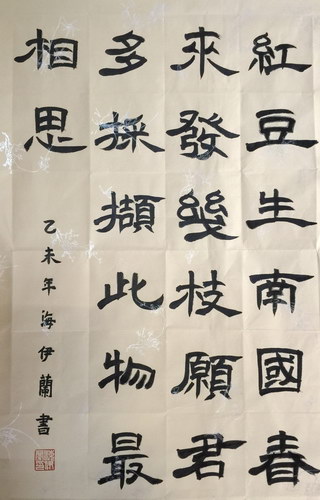 紅豆生南國春
來發幾枝願君
多採擷此物最
相思
乙未年海伊蘭書